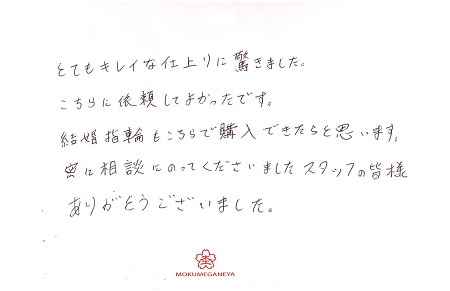 とてもキレイな仕上りに驚きました。
こちらに依頼してよかったです。
結婚指輪もこちらで購入できたらと思います。
密に相談にのってくださいましたスタッフの皆様
ありがとうございました。
MOKUMEGANEYA